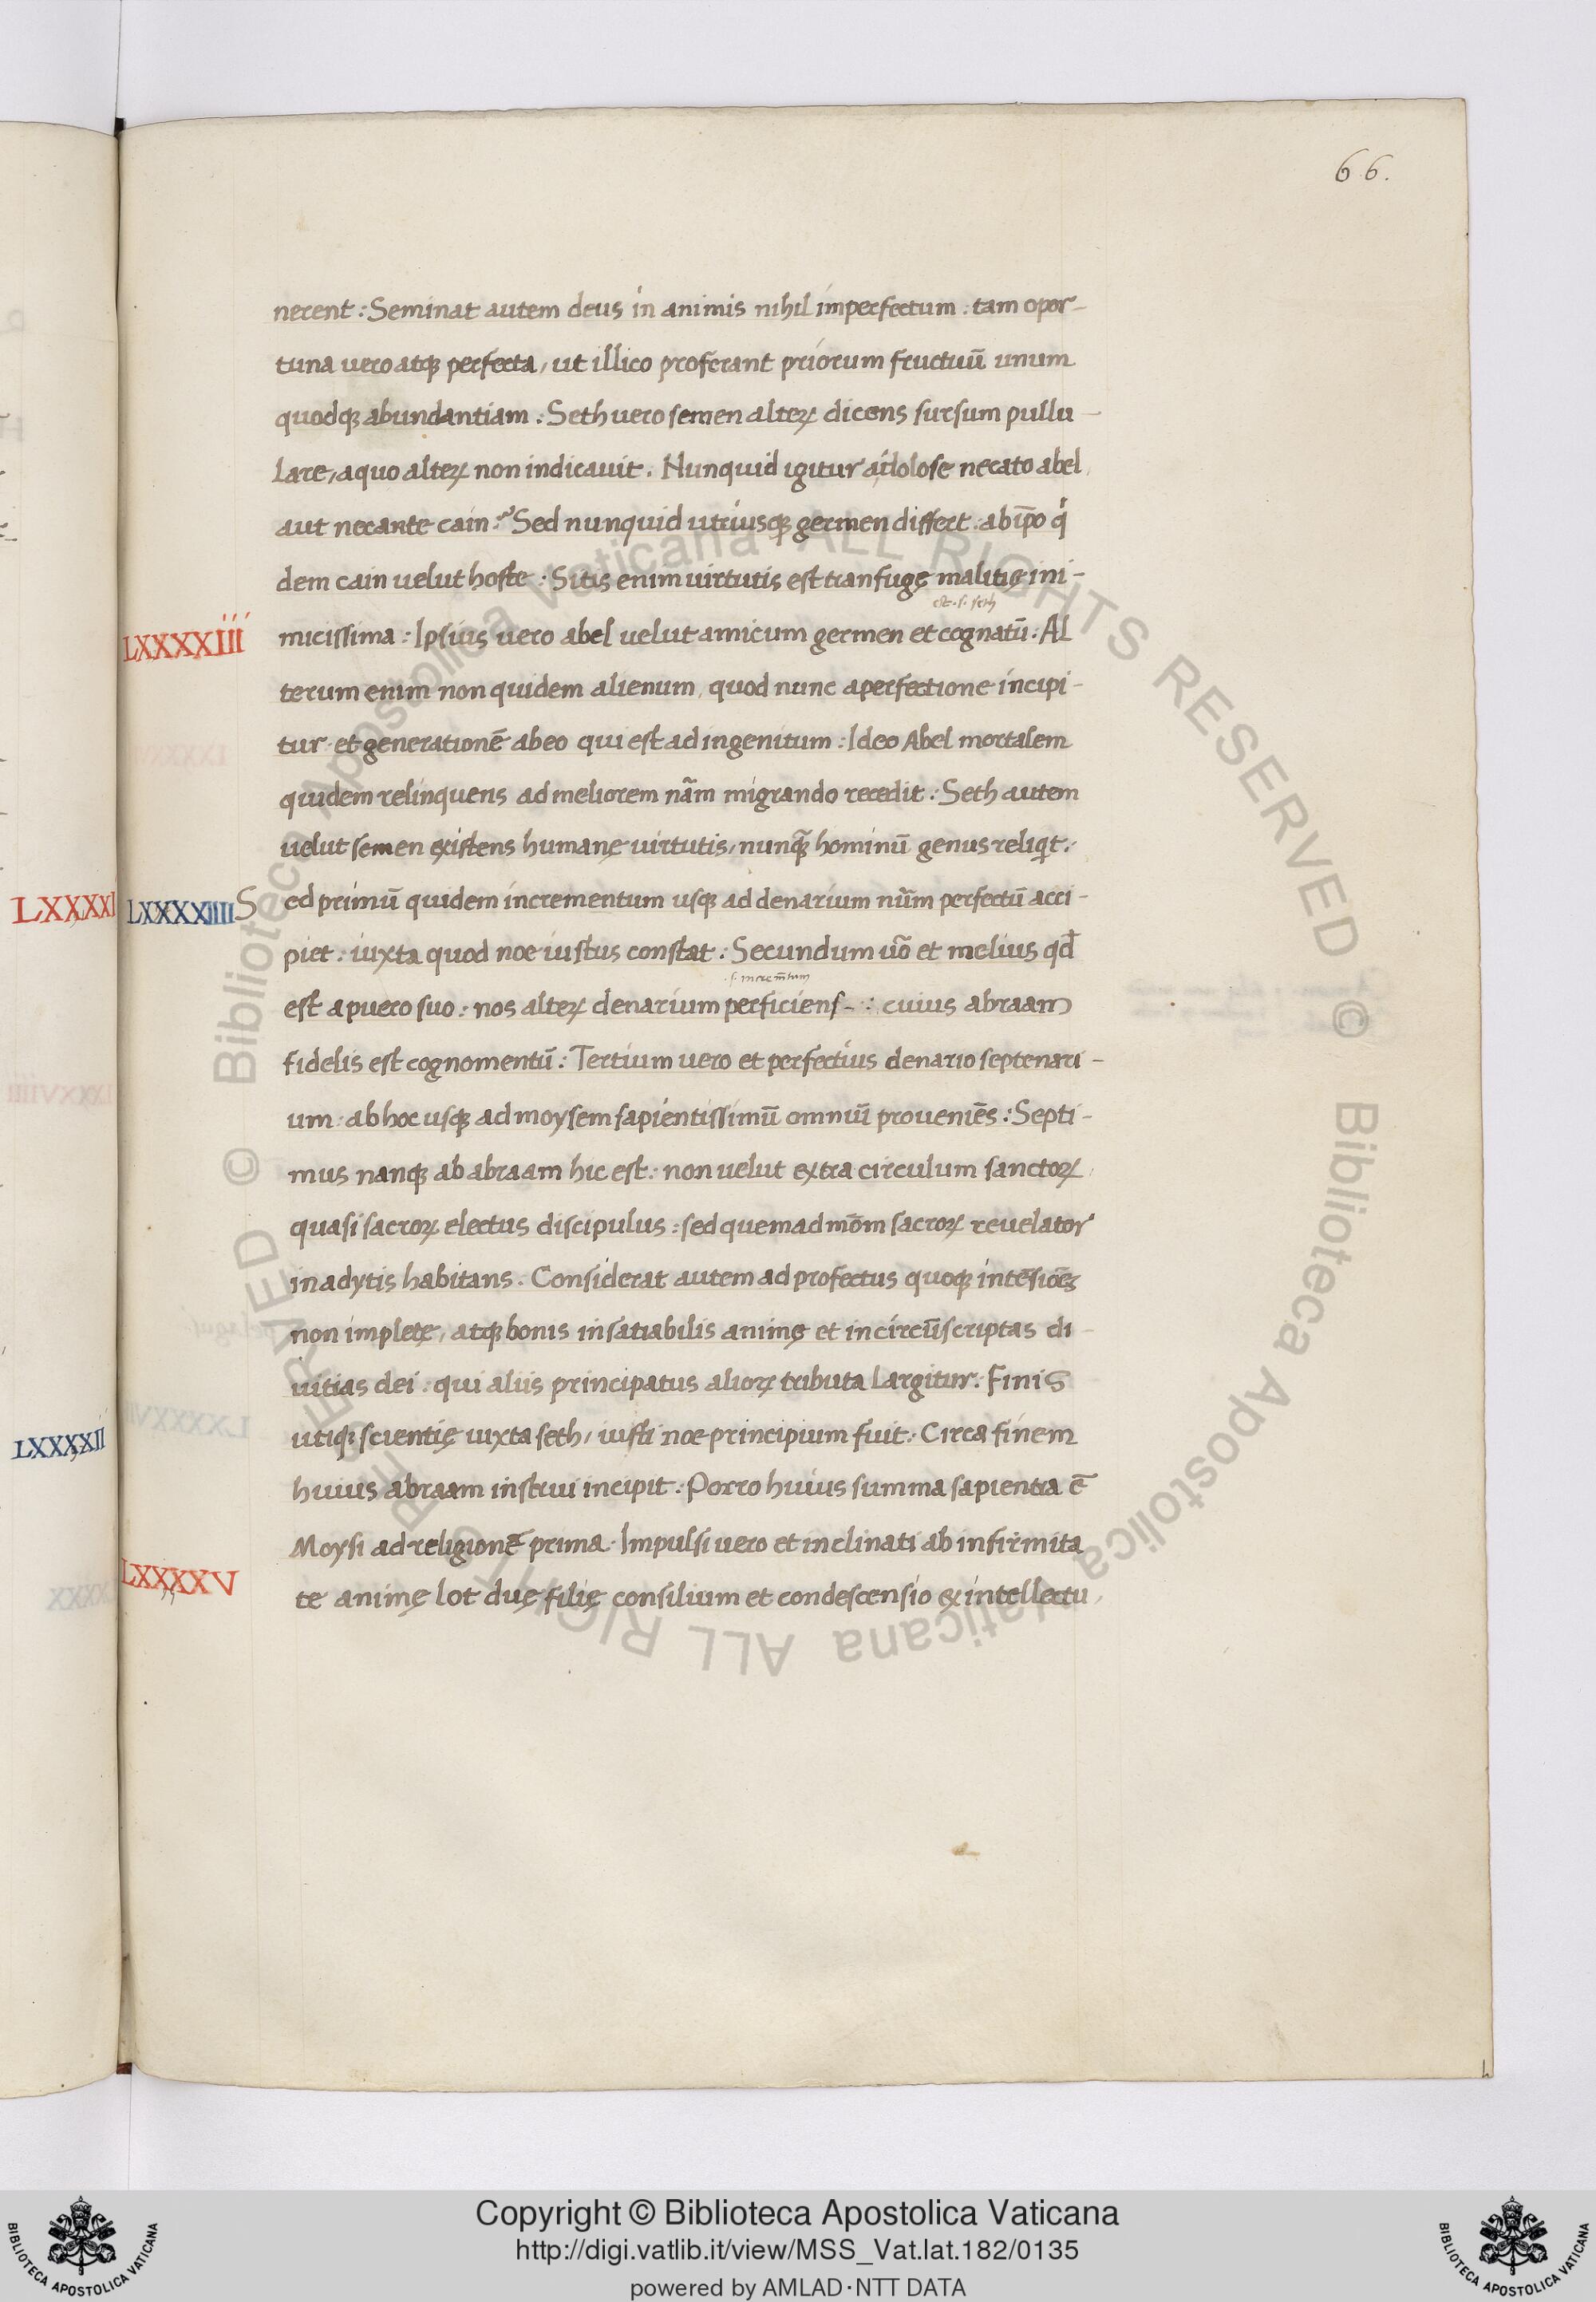 66.
nerent : Seminat autem deus in animis nihil imperfectum : tam opor-
tuna vero atqꝫ perfecta, ut illico proferant priorum fructuū unum
quodqꝫ abundantiam : Seth vero semen alteꝝ dicens sursum pullu-
lare, a quo alteꝝ non indicavit. Nunquid igitur a dolose necato abel
aut necante cain ? Sed nunquid utriusqꝫ germen differt : ab ip̄o q
dem cain velut hoste : Sitis enim virtutis est tranfugę malitię ini-
est .s. seth
LXXXXiii
micissima : Ipsius vero abel velut amicum germen et cognatū : Al
terum enim non quidem alienum, quod nunc a perfectione incipi-
tur et generationē ab eo qui est ad ingenitum : Ideo Abel mortalem
quidem relinquens ad meliorem nām migrando recedit : Seth autem
velut semen existens humanę virtutis, nunqꝫ hominū genus reliqit :
LXXXXI
LXXXXIIII
Sed primū quidem incrementum usqꝫ ad denarium nūm perfectū acci-
piet : iuxta quod noe iustus constat : Secundum uō et melius qd̄
.s. increm̄tum
est a puero suo : nos alteꝝ denarium perficiens - : cuius abraam
fidelis est cognomentū : Tertium vero et perfectius denario septenari-
um : ab hoc usqꝫ ad moysem sapientissimū omniū proveniēs : Septi-
mus nanqꝫ ab abraam hic est : non velut extra circulum sanctoꝝ,
quasi sacroꝝ electus discipulus : sed quemadmōm sacroꝝ revelator
in adytis habitans. Considerat autem ad profectus quoqꝫ intēsiōes
non impletę, atqꝫ bonis insatiabilis animę et incircūscriptas di-
vitias dei : qui aliis principatus alioꝝ tributa largitur : Finis
LXXXXII
utiqꝫ scientię iuxta seth, iusti noe principium fuit : Circa finem
huius abraam instrui incipit : Porro huius summa sapientia ē
Moysi ad religionē prima. Impulsi vero et inclinati ab infirmita
LXXXXV
te animę lot duę filię consilium et condescensio ex intellectu,
Copyright © Biblioteca Apostolica Vaticana
http://digi.vatlib.it/view/MSS_Vat.lat.182/0135
powered by AMLAD·NTT DATA
BIBLIOTECA APOSTOLICA VATICANA
BIBLIOTECA APOSTOLICA VATICANA
© Biblioteca Apostolica Vaticana ALL RIGHTS RESERVED © Biblioteca Apostolica Vaticana ALL RIGHTS RESERVED